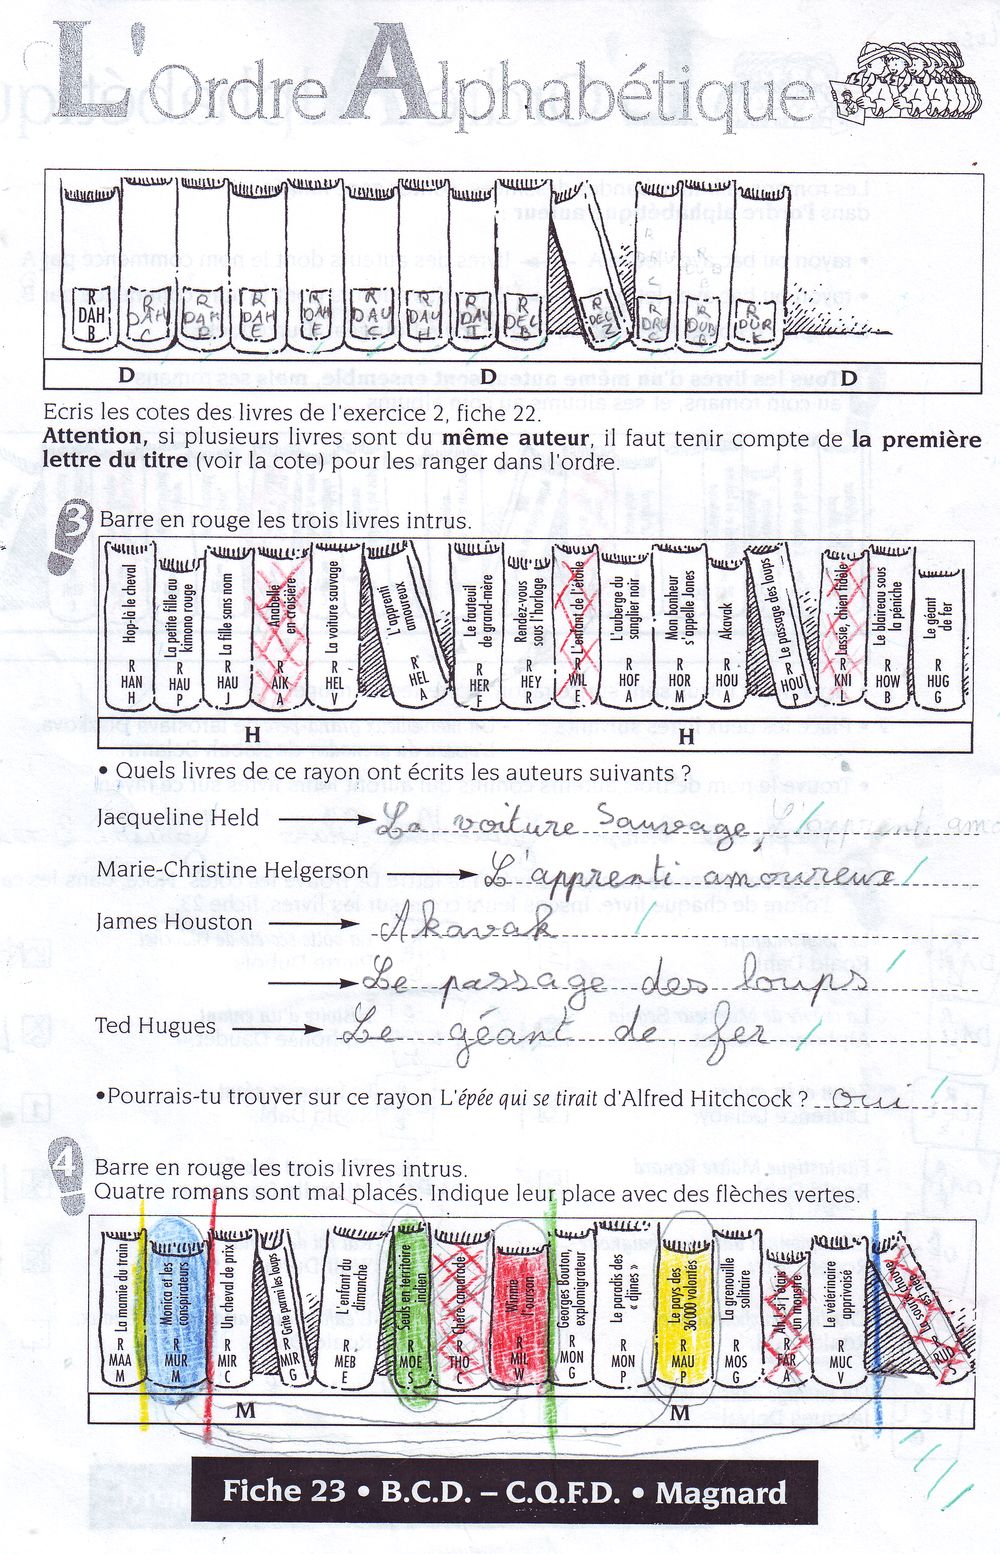 L'Ordre Alphabétique
R DAH B
R DAH C
R DAH
R DAH E
R DAH E
R DAU C
R DAU H
R DAU
R DEL B
R DEL Z
R DRU C
R DUB B
R DUR E
D D D
Ecris les cotes des livres de l'exercice 2, fiche 22.
Attention, si plusieurs livres sont du même auteur, il faut tenir compte de la première
lettre du titre (voir la cote) pour les ranger dans l'ordre.
3 Barre en rouge les trois livres intrus.
Hop-là le cheval R HAN H
La petite fille au kimono rouge R HAU P
La fille sans nom R HAU J
Anabelle en croisière R AIK A
La voiture sauvage R HEL V
L'apprenti amoureux R HEL A
Le fauteuil de grand-mère R HER F
Rendez-vous sous l'horloge R HEY R
L'enfant de l'étoile R WIL E
L'auberge du sanglier noir R HOF A
Mon bonheur s'appelle Jones R HOR M
Akavak R HOU A
Le passage des loups R HOU P
Lassie, chien fidèle R KNI L
Le blaireau sous la péniche R HOW B
Le géant de fer R HUG G
H H
• Quels livres de ce rayon ont écrits les auteurs suivants ?
Jacqueline Held La voiture Sauvage,
Marie-Christine Helgerson L'apprenti amoureux
James Houston Akavak
Le passage des loups
Ted Hugues Le géant de fer
•Pourrais-tu trouver sur ce rayon L'épée qui se tirait d'Alfred Hitchcock ? oui
4 Barre en rouge les trois livres intrus.
Quatre romans sont mal placés. Indique leur place avec des flèches vertes.
La mamie du train R MAA M
Monica et les conspirateurs R MUR M
Un cheval de prix R MIR C
Grite parmi les loups R MIR G
L'enfant du dimanche R MEB E
Seuls en territoire indien R MOE S
Chère camarade R THO C
Winnie l'ourson R MIL W
Georges Bouton, explomigrateur R MON G
Le paradis des « djinns » R MON P
Le pays des 36000 volontés R MAU P
La grenouille solitaire R MOS G
Ah, si j'étais un monstre R FAR A
Le vétérinaire apprivoisé R MUC V
La source est de nouveau R RUD S
M M
Fiche 23 • B.C.D. – C.Q.F.D. • Magnard